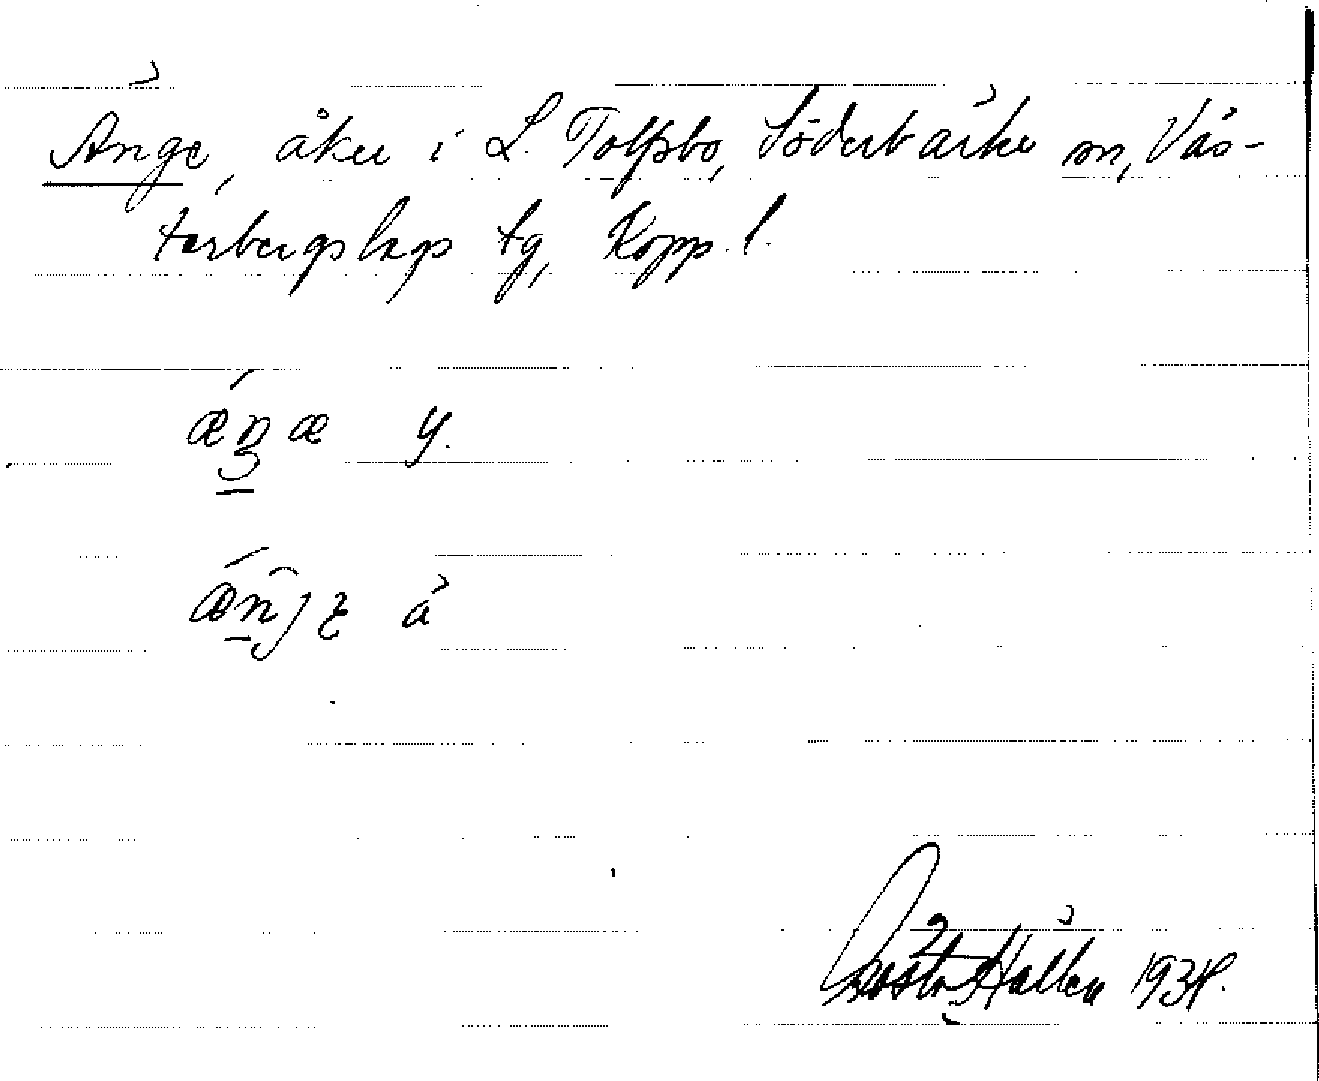 Änge, åker i L. Tolfsbo, Söderbärke sn, Väs-
terbergslags tg, Kopp. l.
æ y.
ä
Gösta Hallén 1934.